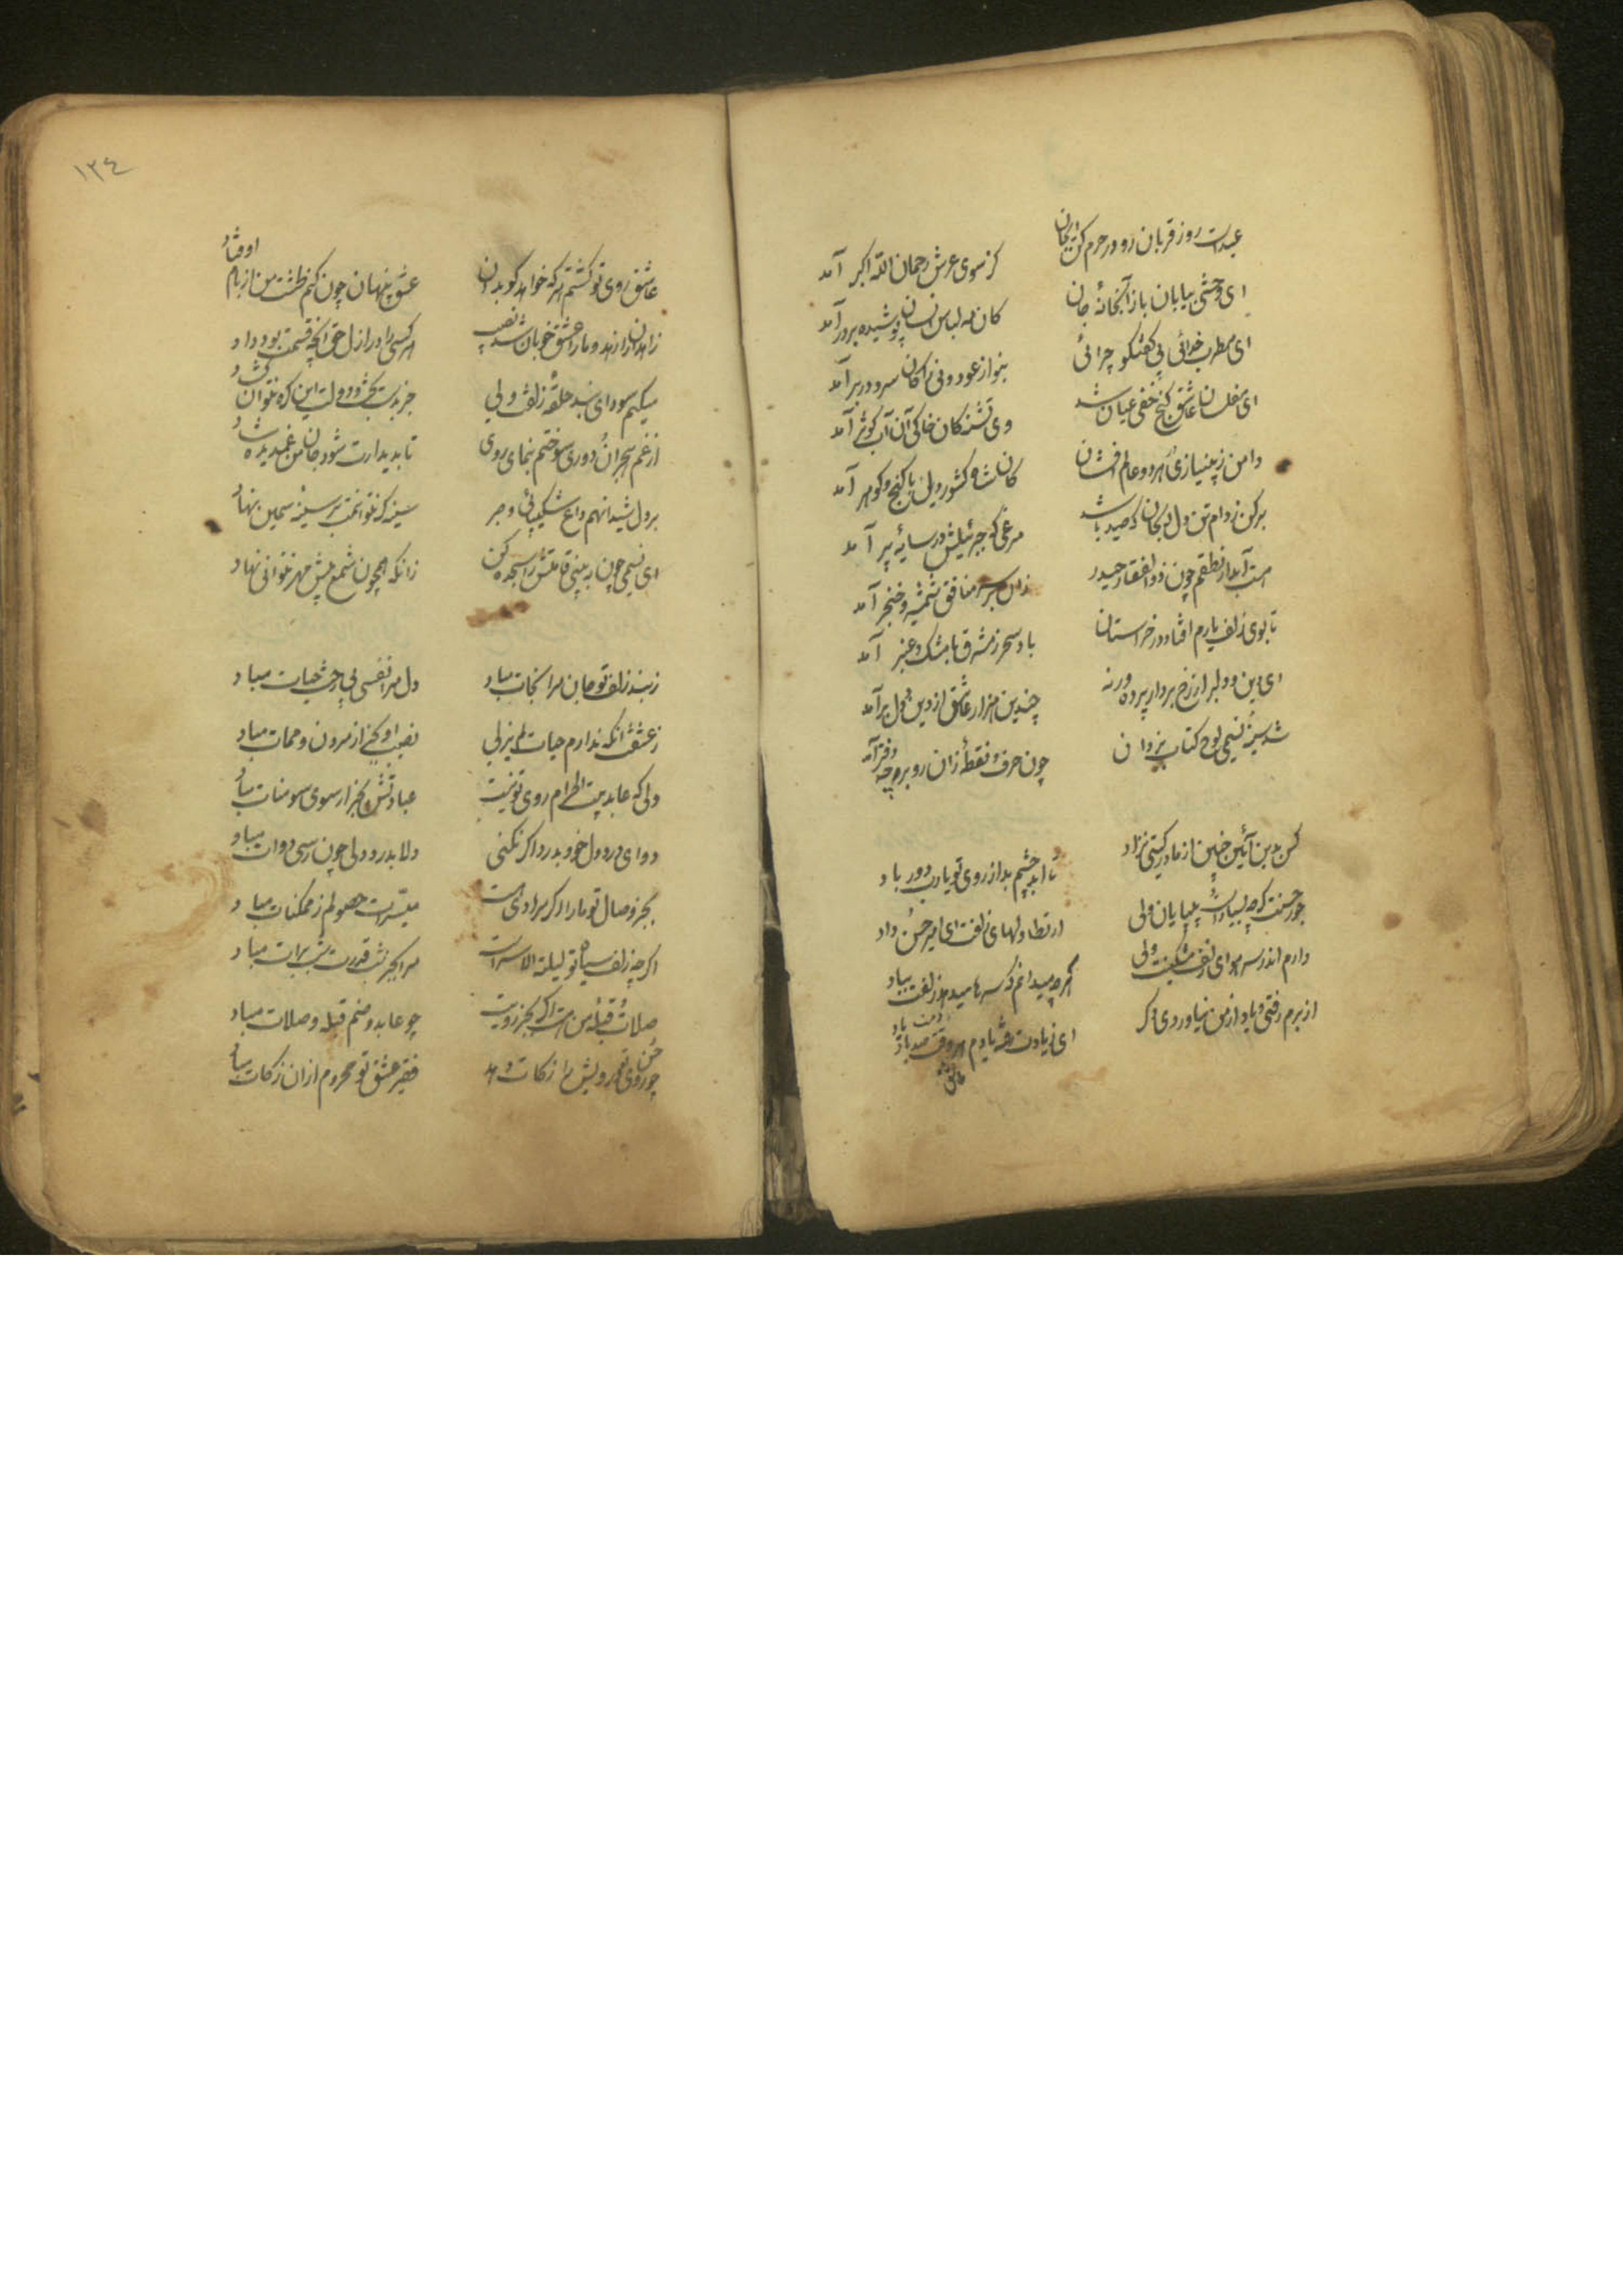 عیدست روز قربان رو در حرم کن ای جان    کز سوی عرش رحمان الله اکبر آمد
ای وحشی بیابان باز آ بخانهٔ جان    کان مه لباس انسان پوشیده بر در آمد
ای مطرب خدائی بی گفتگو چرائی    بنواز عود و نی زان کان سرو در بر آمد
ای مفلسان عاشق گنج خفی عیان شد    وی تشنه کان خاکی آن آب کوثر آمد
دامن ز بینیازی بر هر دو عالم افشان    کان شاه کشور دل با گنج و گوهر آمد
برکن ز دام تن دل بیجان که صید باشد    مرغی که جبرئیلش در سایهٔ پر آمد
هست آبدار نطقم چون ذوالفقار حیدر    زان بر سر منافق شمشیر و خنجر آمد
تا بوی زلف یارم افتاد در خراستان    باد سحر ز مشرق با مشک و عنبر آمد
ای دین و دلبر از رخ بردار پرده ورنه    چندین هزار عاشق از دین و دل برآمد
شد سینهٔ نسیمی لوح کتاب یزدان    چون حرف و نقطه زان رو بر وجه دفتر آمد
کس بدین آئین چنین از مادر گیتی نزاد    تا ابد چشم بد از روی تو یارب دور باد
جور حسنت گرچه بسیار است بی پایان ولی    از تطاولهای زلفت ای امیر حسن داد
دارم اندر سر هوای زلف مشکینت ولی    گرچه میدانم که سرها میدهد زلفت بباد
از برم رفتی و یاد از من نیاوردی دگر    ای ز یادت رفته یادم هر وقت صد یاد باد
عاشق روی تو گشتم هر که خواهد گو بدان    عشق پنهان چون کنم طشت من از بام اوفتاد
زاهدانرا زهد و ما را عشق خوبان شد نصیب    هر کسی را در ازل حق آنچه قسمت بود داد
میکنم سودای بند حلقهٔ زلفش ولی    جز بدست بخت و دولت این گره نتوان گشاد
از غم هجران و دوری سوختم بنمای روی    تا بدیدارت شود جان من غمدیده شاد
بر دل شیدا نهم داغ شکیبائی و صبر    سینه که نتوانمت بر سینهٔ سیمین نهاد
ای نسیمی چون ببینی قامتش را سجده کن    زانکه همچون شمع پیش مهر نتوانی نهاد
ز بند زلف تو جان مرا نجات مباد    دل مرا نفسی بی رخت حیات مباد
ز عشقت آنکه ندارم حیات لم یزلی    نصیب او بجز از مردن و ممات مباد
دلی که عابد بیت الحرام روی تو نیست    عبادتش بجز از سوی سومنات مباد
دوای درد دل خود بدرد اگر نکنی    دلا بدرد دلی چون رسی دوات مباد
بجز وصال تو ما را گر مرادی هست    میسرات حصولم ز ممکنات مباد
اگرچه زلف سیاه تو لیلة الاسراست    مرا بجز شب قدرت شب برات مباد
صلات و قبلهٔ من هست اگر بجز رویت    چو عابد و صنم قبله و صلات مباد
چو روی حسن تو درویش را زکات دهد    فقیر عشق تو محروم ازان زکات مباد
١٣٤